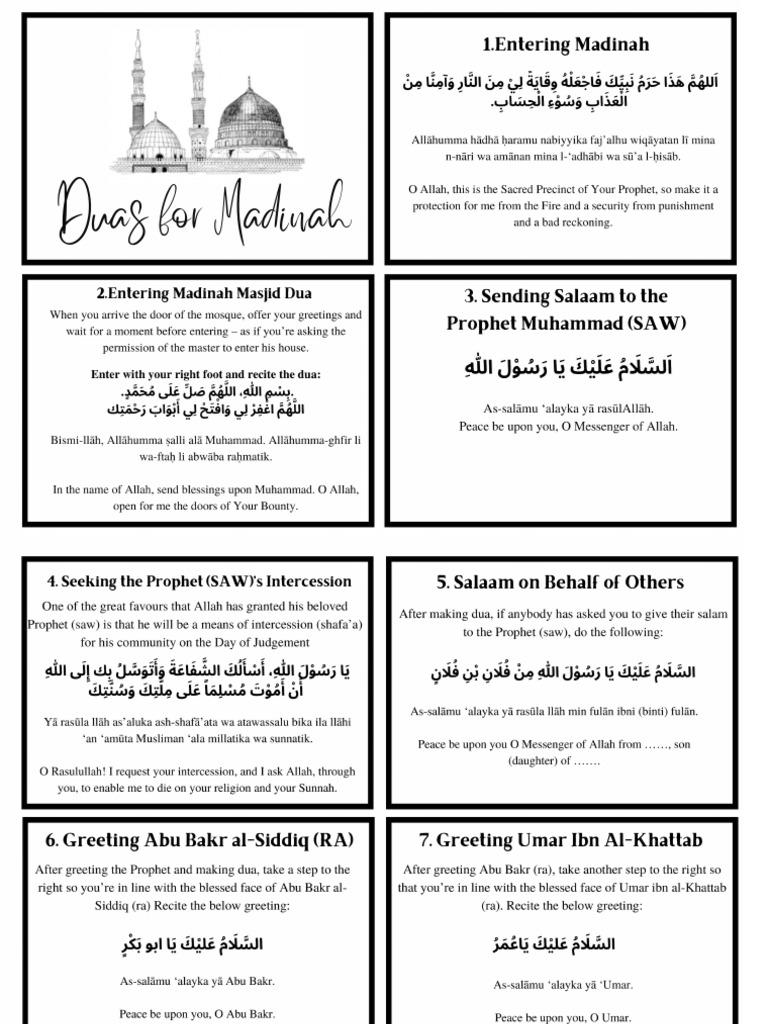 Duas for Madinah
1.Entering Madinah
اَللهُمَّ هَذَا حَرَمُ نَبِيِّكَ فَاجْعَلْهُ وِقَايَةً لِيْ مِنَ النَّارِ وَآمِنًّا مِنْ
الْعَذَابِ وَسُوْءِ الْحِسَابِ.
Allāhumma hādhā ḥaramu nabiyyika faj’alhu wiqāyatan lī mina
n-nāri wa amānan mina l-‘adhābi wa sū’a l-ḥisāb.
O Allah, this is the Sacred Precinct of Your Prophet, so make it a
protection for me from the Fire and a security from punishment
and a bad reckoning.
2.Entering Madinah Masjid Dua
When you arrive the door of the mosque, offer your greetings and
wait for a moment before entering – as if you’re asking the
permission of the master to enter his house.
Enter with your right foot and recite the dua:
.بِسْمِ اللهِ، اللَّهُمَّ صَلِّ عَلَى مُحَمَّدٍ.
اللَّهُمَّ اغْفِرْ لِي وَافْتَحْ لِي أَبْوَابَ رَحْمَتِك
Bismi-llāh, Allāhumma ṣalli alā Muhammad. Allāhumma-ghfir li
wa-ftaḥ li abwāba raḥmatik.
In the name of Allah, send blessings upon Muhammad. O Allah,
open for me the doors of Your Bounty.
3. Sending Salaam to the
Prophet Muhammad (SAW)
اَلسَّلَامُ عَلَيْكَ يَا رَسُوْلَ اللهِ
As-salāmu ‘alayka yā rasūlAllāh.
Peace be upon you, O Messenger of Allah.
4. Seeking the Prophet (SAW)'s Intercession
One of the great favours that Allah has granted his beloved
Prophet (saw) is that he will be a means of intercession (shafa’a)
for his community on the Day of Judgement
يَا رَسُوْلَ اللهِ، أَسْأَلُكَ الشَّفَاعَةَ وَأَتَوَسَّلُ بِك إِلَى اللهِ
أَنْ أَمُوْتَ مُسْلِمَاً عَلَى مِلَّتِكَ وَسُنَّتِكَ
Yā rasūla llāh as’aluka ash-shafā’ata wa atawassalu bika ila llāhi
‘an ‘amūta Musliman ‘ala millatika wa sunnatik.
O Rasulullah! I request your intercession, and I ask Allah, through
you, to enable me to die on your religion and your Sunnah.
5. Salaam on Behalf of Others
After making dua, if anybody has asked you to give their salam
to the Prophet (saw), do the following:
السَّلَامُ عَلَيْكَ يَا رَسُوْلَ اللهِ مِنْ فُلَانِ بْنِ فُلَانٍ
As-salāmu ‘alayka yā rasūla llāh min fulān ibni (binti) fulān.
Peace be upon you O Messenger of Allah from ……, son
(daughter) of …….
6. Greeting Abu Bakr al-Siddiq (RA)
After greeting the Prophet and making dua, take a step to the
right so you’re in line with the blessed face of Abu Bakr al-
Siddiq (ra) Recite the below greeting:
السَّلَامُ عَلَيْكَ يَا ابو بَكْرٍ
As-salāmu ‘alayka yā Abu Bakr.
Peace be upon you, O Abu Bakr.
7. Greeting Umar Ibn Al-Khattab
After greeting Abu Bakr (ra), take another step to the right so
that you’re in line with the blessed face of Umar ibn al-Khattab
(ra). Recite the below greeting:
السَّلَامُ عَلَيْكَ يَاعُمَرُ
As-salāmu ‘alayka yā ‘Umar.
Peace be upon you, O Umar.